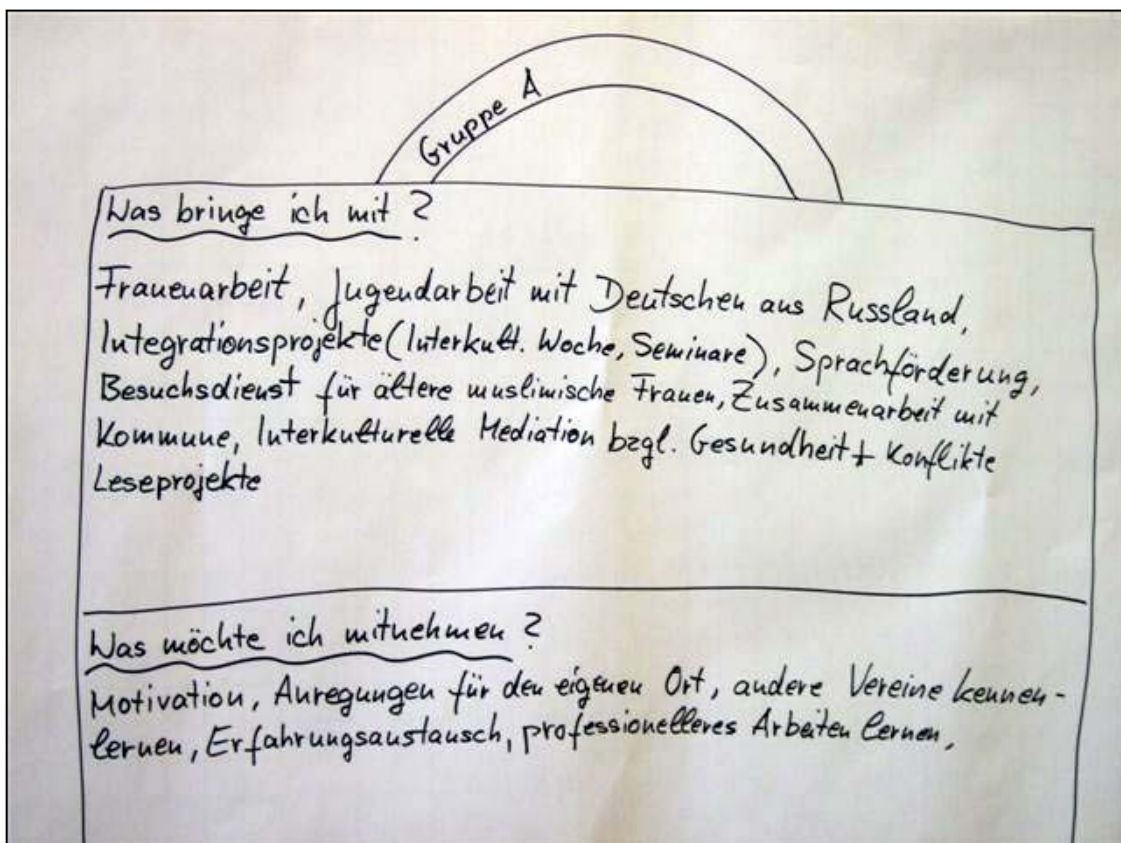 Gruppe A
Was bringe ich mit ?
Frauenarbeit, Jugendarbeit mit Deutschen aus Russland,
Integrationsprojekte (Interkult. Woche, Seminare), Sprachförderung,
Besuchsdienst für ältere muslimische Frauen, Zusammenarbeit mit
Kommune, Interkulturelle Mediation bzgl. Gesundheit + Konflikte
Leseprojekte
Was möchte ich mitnehmen ?
Motivation, Anregungen für den eigenen Ort, andere Vereine kennen-
lernen, Erfahrungsaustausch, professionelleres Arbeiten lernen,